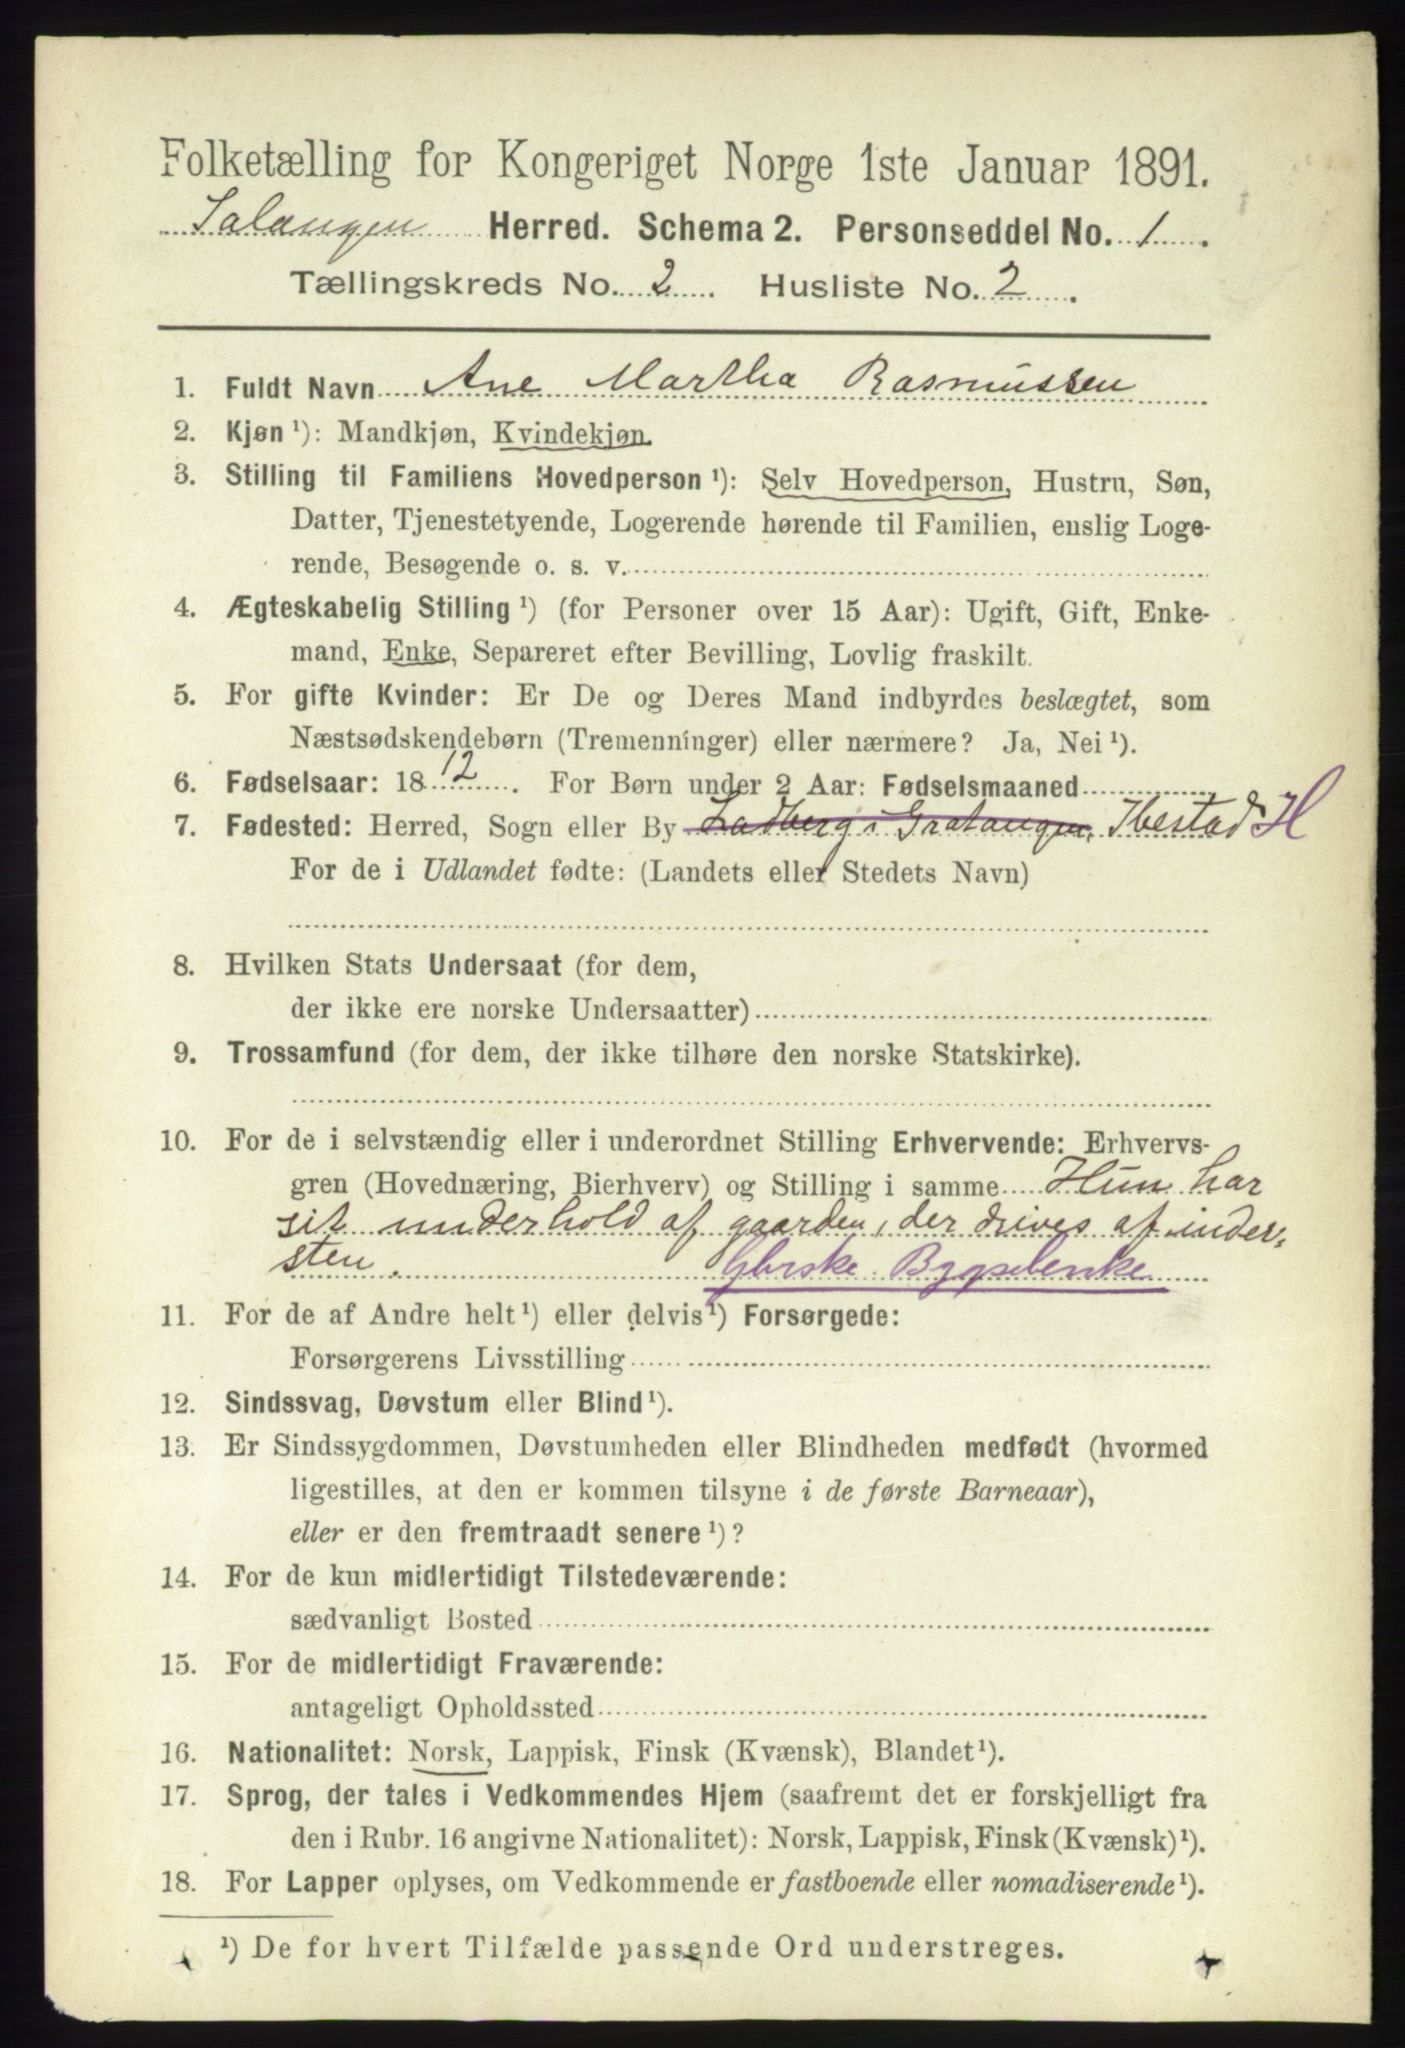 Folketælling for Kongeriget Norge 1ste Januar 1891.
Salangen Herred. Schema 2. Personseddel No. 1.
Tællingskreds No. 2. Husliste No. 2.
1. Fuldt Navn Ane Martha Rasmussen
2. Kjøn ¹): Mandkjøn, Kvindekjøn.
3. Stilling til Familiens Hovedperson ¹): Selv Hovedperson, Hustru, Søn,
Datter, Tjenestetyende, Logerende hørende til Familien, enslig Loge-
rende, Besøgende o. s. v.
4. Ægteskabelig Stilling ¹) (for Personer over 15 Aar): Ugift, Gift, Enke-
mand, Enke, Separeret efter Bevilling, Lovlig fraskilt.
5. For gifte Kvinder: Er De og Deres Mand indbyrdes beslægtet, som
Næstsødskendebørn (Tremenninger) eller nærmere? Ja, Nei ¹).
6. Fødselsaar: 1812. For Børn under 2 Aar: Fødselsmaaned
7. Fødested: Herred, Sogn eller By i Gratangen, Ibestad H
For de i Udlandet fødte: (Landets eller Stedets Navn)
8. Hvilken Stats Undersaat (for dem,
der ikke ere norske Undersaatter)
9. Trossamfund (for dem, der ikke tilhøre den norske Statskirke).
10. For de i selvstændig eller i underordnet Stilling Erhvervende: Erhvervs-
gren (Hovednæring, Bierhverv) og Stilling i samme Hun har
sit underhold af gaarden, der drives af inder-
sten. Gbrske Bygselenke
11. For de af Andre helt ¹) eller delvis ¹) Forsørgede:
Forsørgerens Livsstilling
12. Sindssvag, Døvstum eller Blind ¹).
13. Er Sindssygdommen, Døvstumheden eller Blindheden medfødt (hvormed
ligestilles, at den er kommen tilsyne i de første Barneaar),
eller er den fremtraadt senere ¹)?
14. For de kun midlertidigt Tilstedeværende:
sædvanligt Bosted
15. For de midlertidigt Fraværende:
antageligt Opholdssted
16. Nationalitet: Norsk, Lappisk, Finsk (Kvænsk), Blandet ¹).
17. Sprog, der tales i Vedkommendes Hjem (saafremt det er forskjelligt fra
den i Rubr. 16 angivne Nationalitet): Norsk, Lappisk, Finsk (Kvænsk) ¹).
18. For Lapper oplyses, om Vedkommende er fastboende eller nomadiserende ¹).
¹) De for hvert Tilfælde passende Ord understreges.